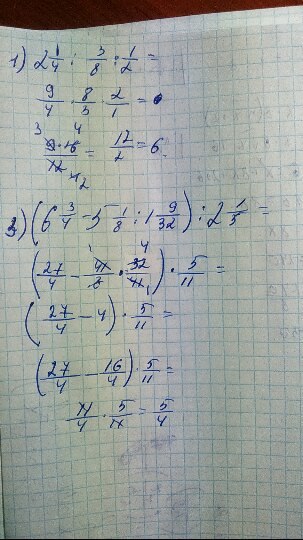 1) 2 1/4 : 3/8 : 1/2 =
9/4 · 8/3 · 2/1 =
3 4
9·16/12 = 12/2 = 6
2
2) (6 3/4 - 5 1/8 : 1 9/32) : 2 1/5 =
1 4
(27/4 - 41/8 · 32/41) · 5/11 =
1
(27/4 - 4) · 5/11 =
(27/4 - 16/4) · 5/11 =
11/4 · 5/11 = 5/4